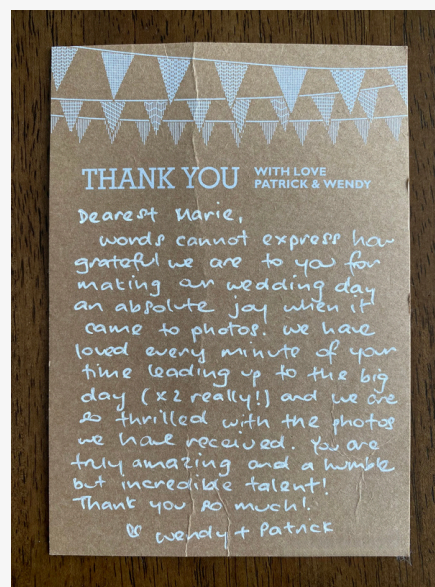 THANK YOU WITH LOVE
PATRICK & WENDY
Dearest Marie,
words cannot express how
grateful we are to you for
making our wedding day
an absolute joy when it
came to photos. We have
loved every minute of your
time leading up to the big
day (x2 really!) and we are
so thrilled with the photos
we have received. You are
truly amazing and a humble
but incredible talent!
Thank you so much!
Wendy + Patrick